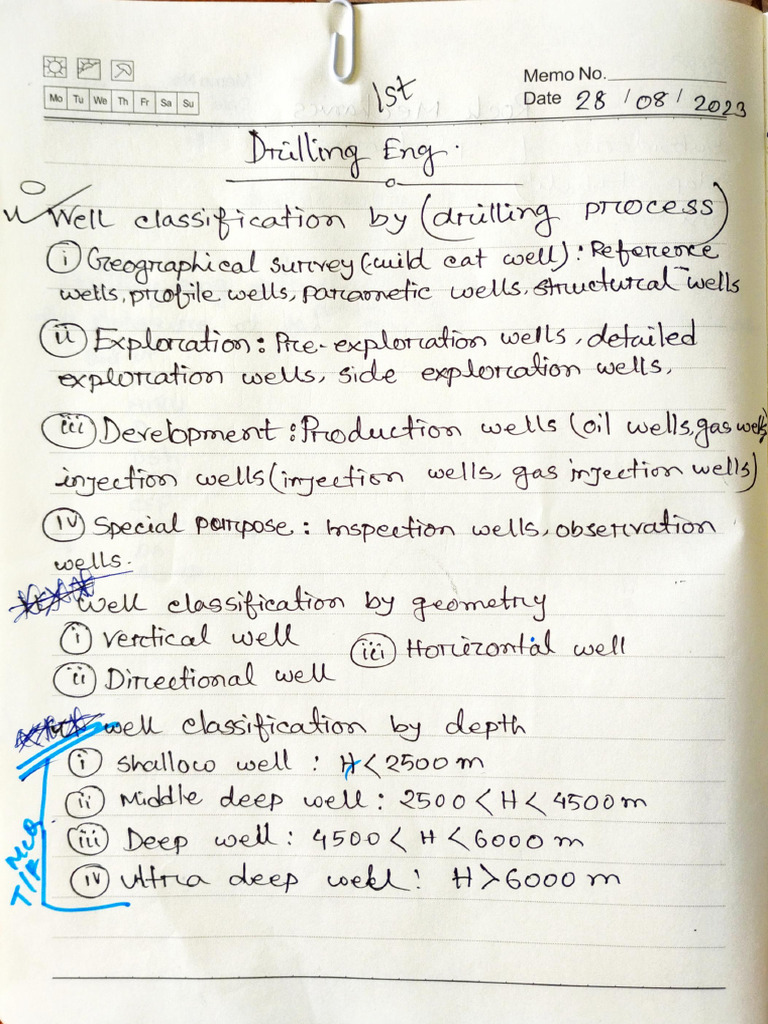 Memo No.
Mo Tu We Th Fr Sa Su
1st
Date 28 / 08 / 2023
Drilling Eng.
Well classification by (drilling process)
(i) Geographical survey (wild cat well) : Reference
wells, profile wells, parametic wells, structural wells
(ii) Exploration : Pre-exploration wells, detailed
exploration wells, side exploration wells,
(iii) Development : Production wells (oil wells, gas wells)
injection wells (injection wells, gas injection wells)
(iv) Special purpose : Inspection wells, observation
wells.
Well classification by geometry
(i) Vertical well (iii) Horizontal well
(ii) Directional well
well classification by depth
(i) Shallow well : H < 2500 m
(ii) Middle deep well : 2500 < H < 4500 m
(iii) Deep well : 4500 < H < 6000 m
(iv) Ultra deep well : H > 6000 m
MCQ
T/F